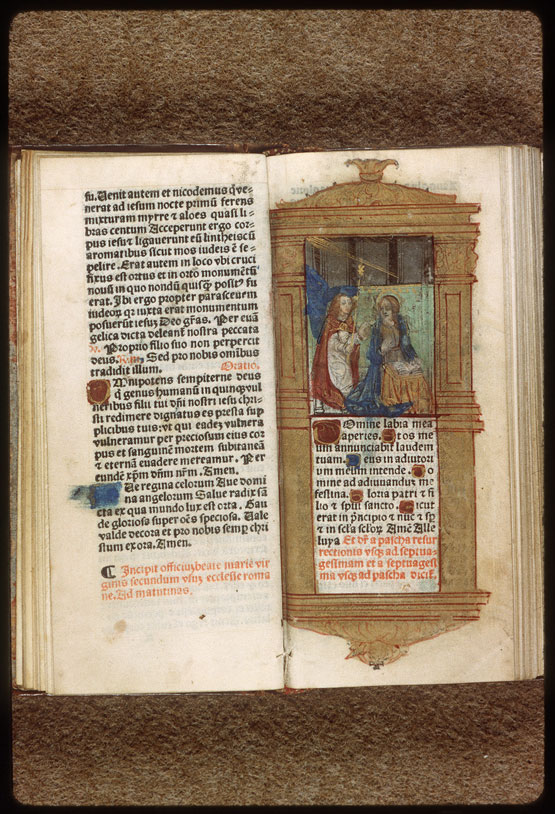 fu. Uenit autem et nicodemus q̄ ve-
nerat ad iesum nocte primū ferens
mixturam myrre ⁊ aloes quasi li-
bras centum Acceperunt ergo cor-
pus iesu ⁊ ligauerunt eū lintheis cū
aromatibus sicut mos iudeis ē se-
pelire. Erat autem in loco vbi cruci
fixus est ortus et in orto monumētū
nouū in quo nondū quisq̄ positꝰ fu
erat. Ibi ergo propter parasceuem
iudeoꝝ qꝛ iuxta erat monumentum
posuerūt iesuꝫ Deo grās. Per euā
gelica dicta deleant̄ nostra peccata
v. Proprio filio suo non pepercit
deus. Sed pro nobis omībus
tradidit illum. Oratio.
Omnipotens sempiterne deus
q̄ genus humanū in quinqꝫ vul
neribus filii tui dn̄i nostri iesu chri-
sti redimere dignatus es presta sup
plicibus tuis: vt qui eadeꝫ vulnera
vulneramur per preciosum eius cor
pus et sanguinē mortem subitaneā
⁊ eternā euadere mereamur. Per
eundē xp̄m dn̄m nr̄m. Amen.
Aue regina celorum Aue domi
na angelorum Salue radix sā
cta ex qua mundo lux est orta. Gau
de gloriosa super oēs speciosa. Uale
valde decora et pro nobis semꝑ chri
stum exora. Amen.
Incipit officiuꝫ beate marie vir
ginis secundum vsuꝫ ecclesie roma
ne. Ad matutinas.
Domine labia mea
aperies. Et os me
um annunciabit laudem
tuam. Deus in adiutori
um meum intende. Do
mine ad adiuuanduꝫ me
festina. Gloria patri ⁊ fi
lio ⁊ spiū sancto. Sicut
erat in prīcipio ⁊ nūc ⁊ sꝑ
⁊ in secla scloꝝ Amē Alle
luya Et dr̄ a pascha resur
rectionis vsqꝫ ad septua-
gesimam et a septuagesi
ma vsqꝫ ad pascha dicit̄.